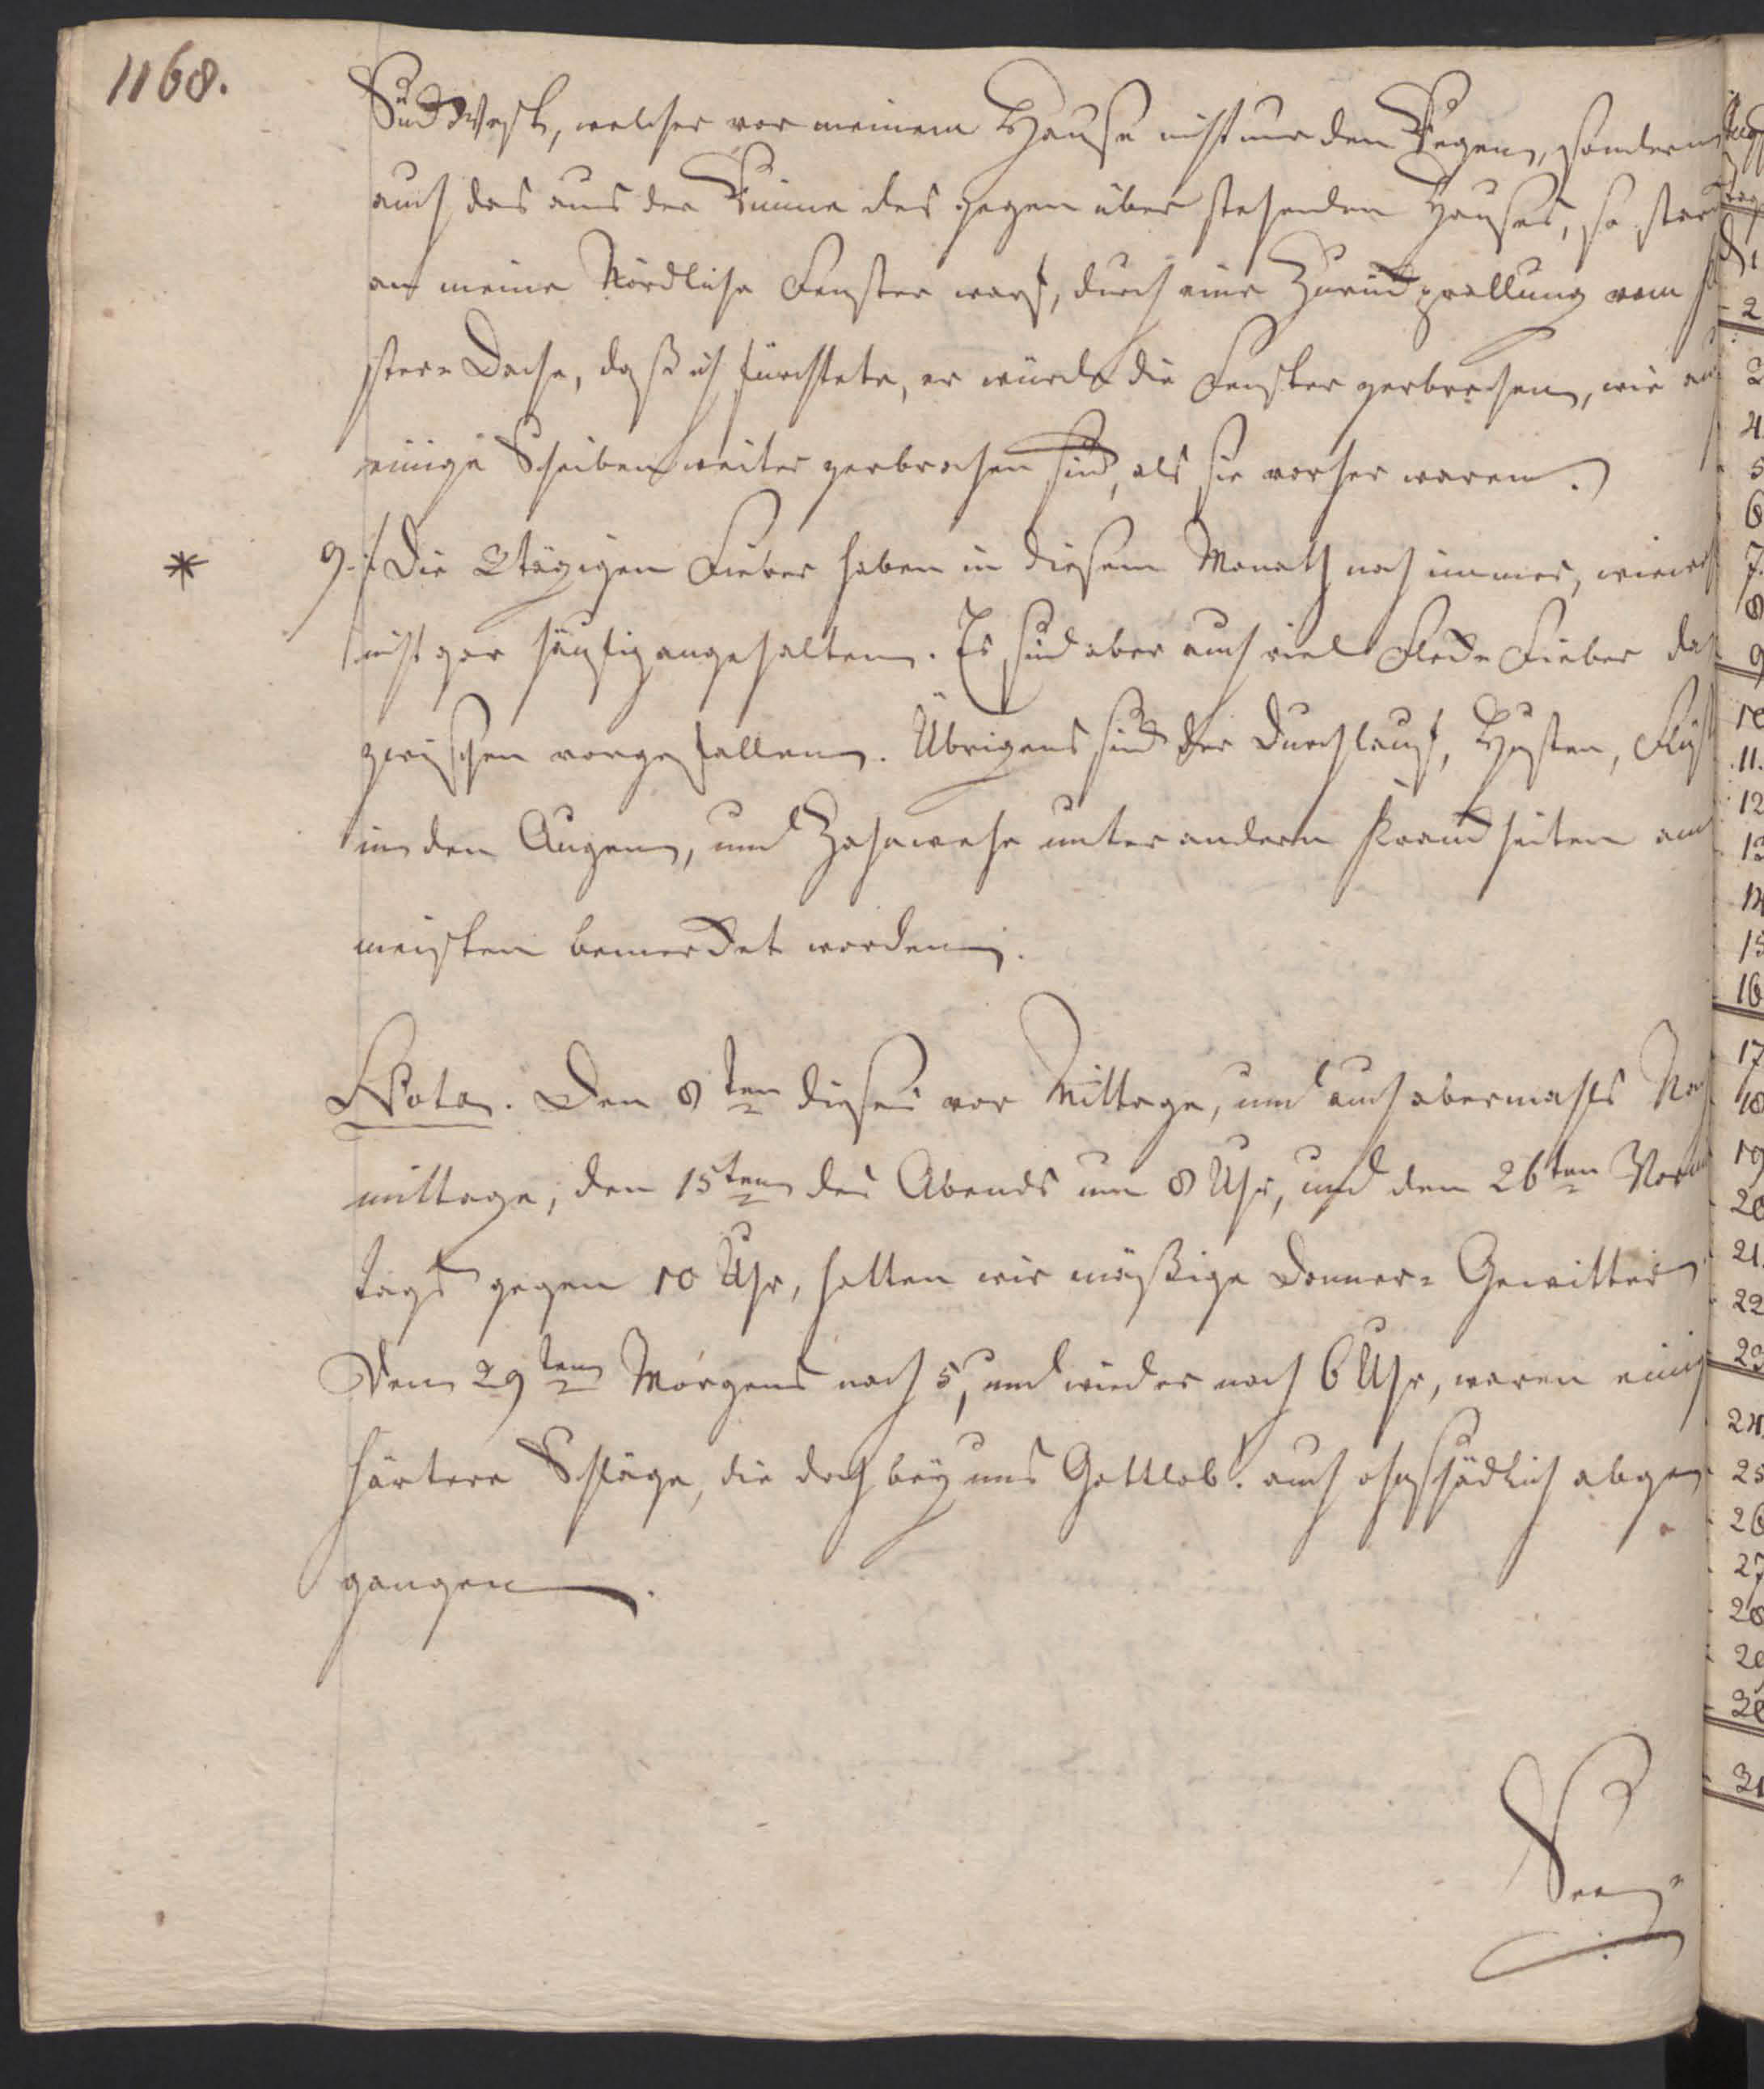 1168.
Süd West, welcher vor meinem Hause nicht nur den Regen, sondern
auch das aus der Rinne des gegen über stehenden Hauses, so starck
an meine Nördliche Fenster warf, durch eine Zurückprallung vom
ster= Dache, daß ich fürchtete, er würde die Fenster zerbrechen, wie auch
einige Scheiben weiter zerbrochen sind, als sie vorher waren.
* 9. Die 3tägigen Fieber haben in diesem Monath noch immer, wiewohl
nicht gar häufig angehalten. Es sind aber auch viel Fleck=Fieber da
zwischen vorgefallen. Übrigens sind der Durchlauf, Husten, Flüsse
in den Augen, und Zahnwehe unter andern Kranckheiten am
meisten bemercket worden.
Nota. Den 8ten dieses vor Mittage, und auch abermahls Nach
mittage, den 15ten des Abends um 8 Uhr, und den 26ten Vormit
tags gegen 10 Uhr, hatten wir mäßige Donner= Gewitter.
Den 29ten Morgens nach 5, und wieder nach 6 Uhr, waren einige
härtere Schläge, die doch bey uns Gottlob! auch ohnschädlich abge
gangen.
2
2
4
5
6
7.
8
9
10
11.
12
13
14
15
16
17
18
19
20
21.
22
23
24
25
26
27
28
29
30
31